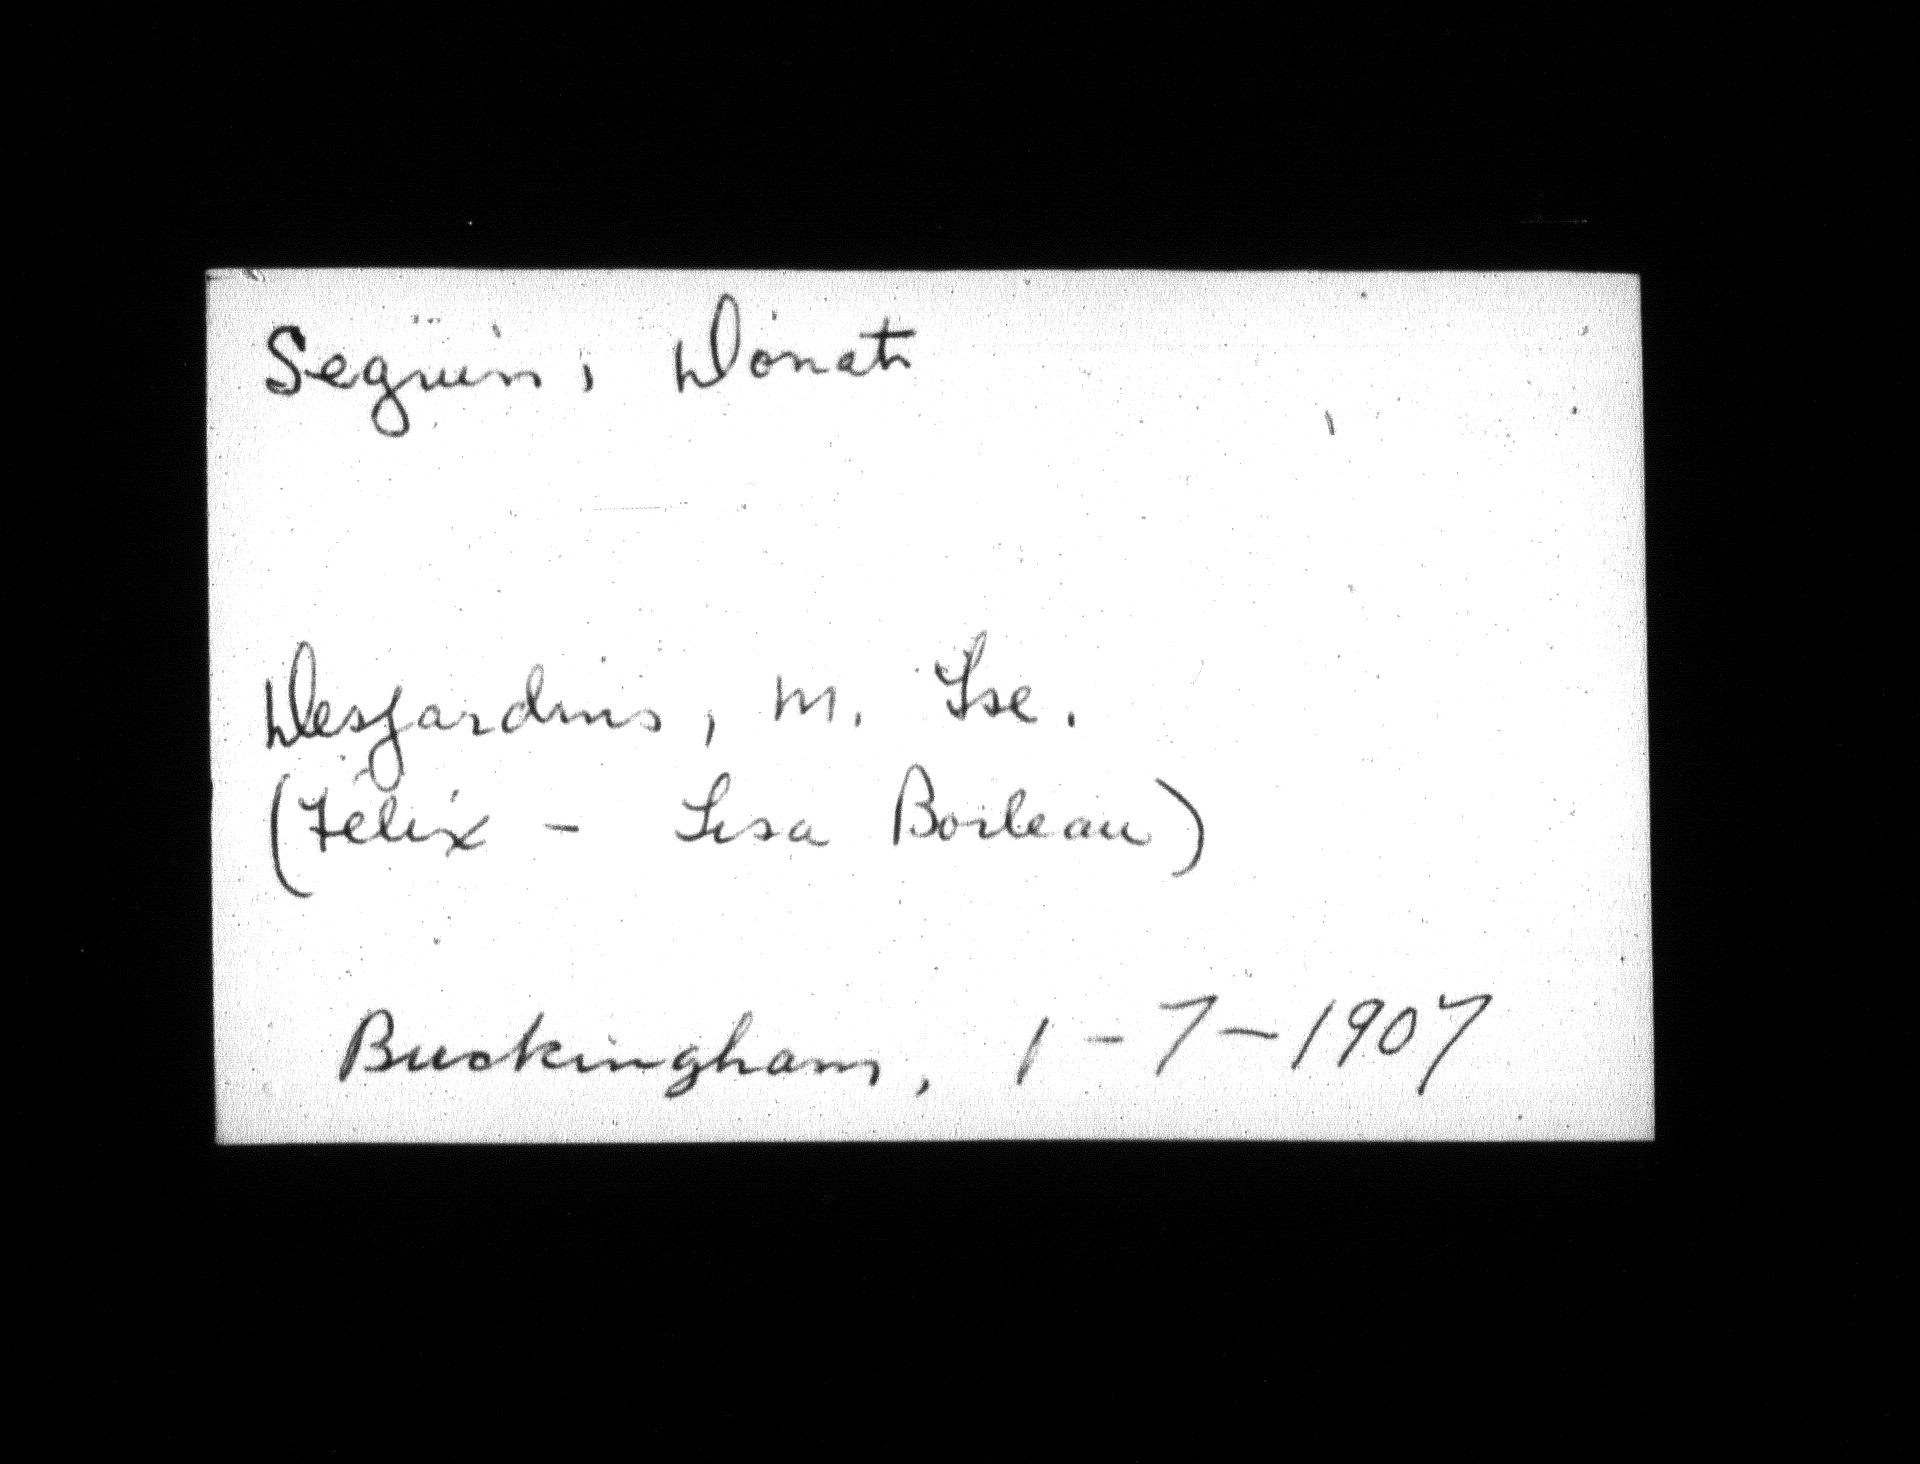 Seguin, Donat
Desjardins, M. Lse.
(Félix - Lisa Boileau)
Buckingham, 1-7-1907